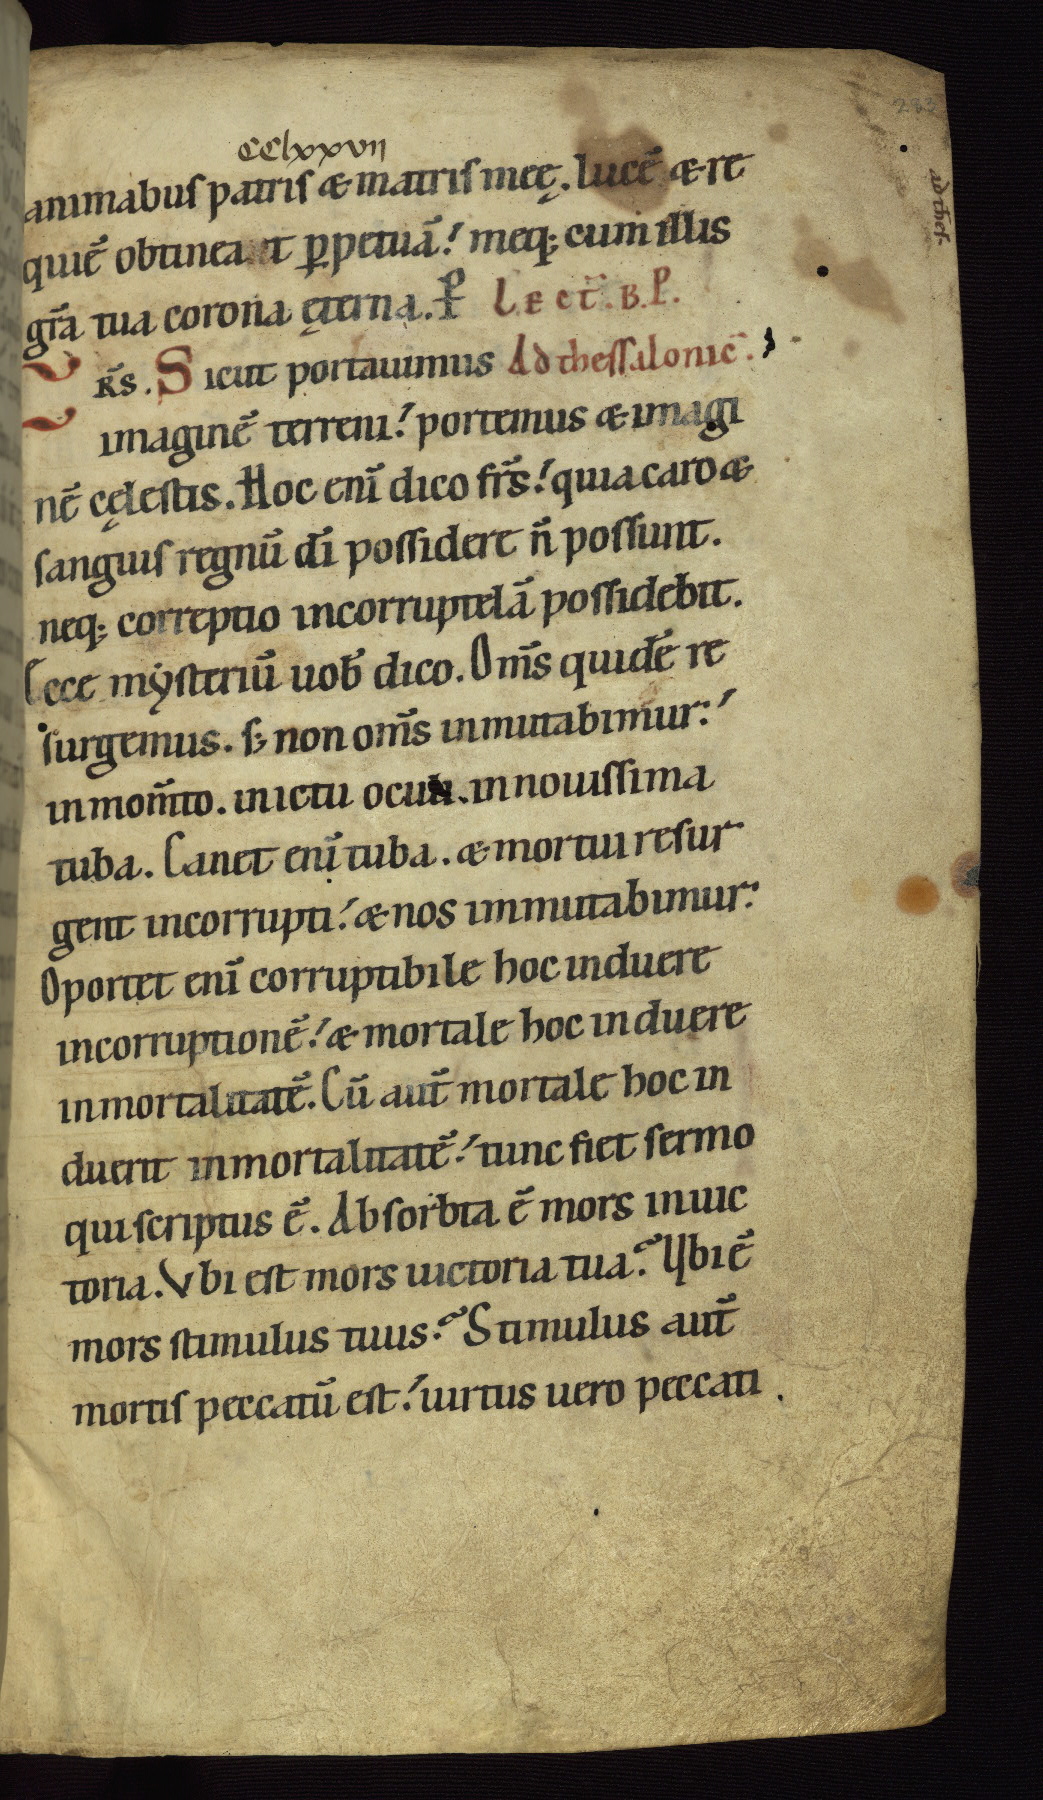 CClxxvii
283
animabus patris & matris meę. lucē & re
quiē obtineat ꝑpetuā! meq; cum illis
gr̄a tua corona ęterna. P̱ Lect̄. B. P.
R̄s. Sicut portauimus Ad thessalonic̄.
imaginē terreni! portemus & imagi
nē cęlestis. Hoc enī dico fr̄s! quia caro &
sanguis regnū dī possidere n̄ possunt.
neq; correptio incorruptelā possidebit.
Ecce mẏsteriū uob̄ dico. Om̄s quidē re
surgemus. s; non om̄s inmutabimur:
in mom̄to. in ictu oculi. in nouissima
tuba. Canet enī tuba. & mortui resur
gent incorrupti! & nos immutabimur:
Oportet enī corruptibile hoc induere
incorruptionē! & mortale hoc induere
inmortalitatē. Cū aut̄ mortale hoc in
duerit inmortalitatē! tunc fiet sermo
qui scriptus ē. Absorbta ē mors in uic
toria. Vbi est mors uictoria tua? Vbi ē
mors stimulus tuus? Stimulus aut̄
mortis peccatū est! uirtus uero peccati
ad thes.